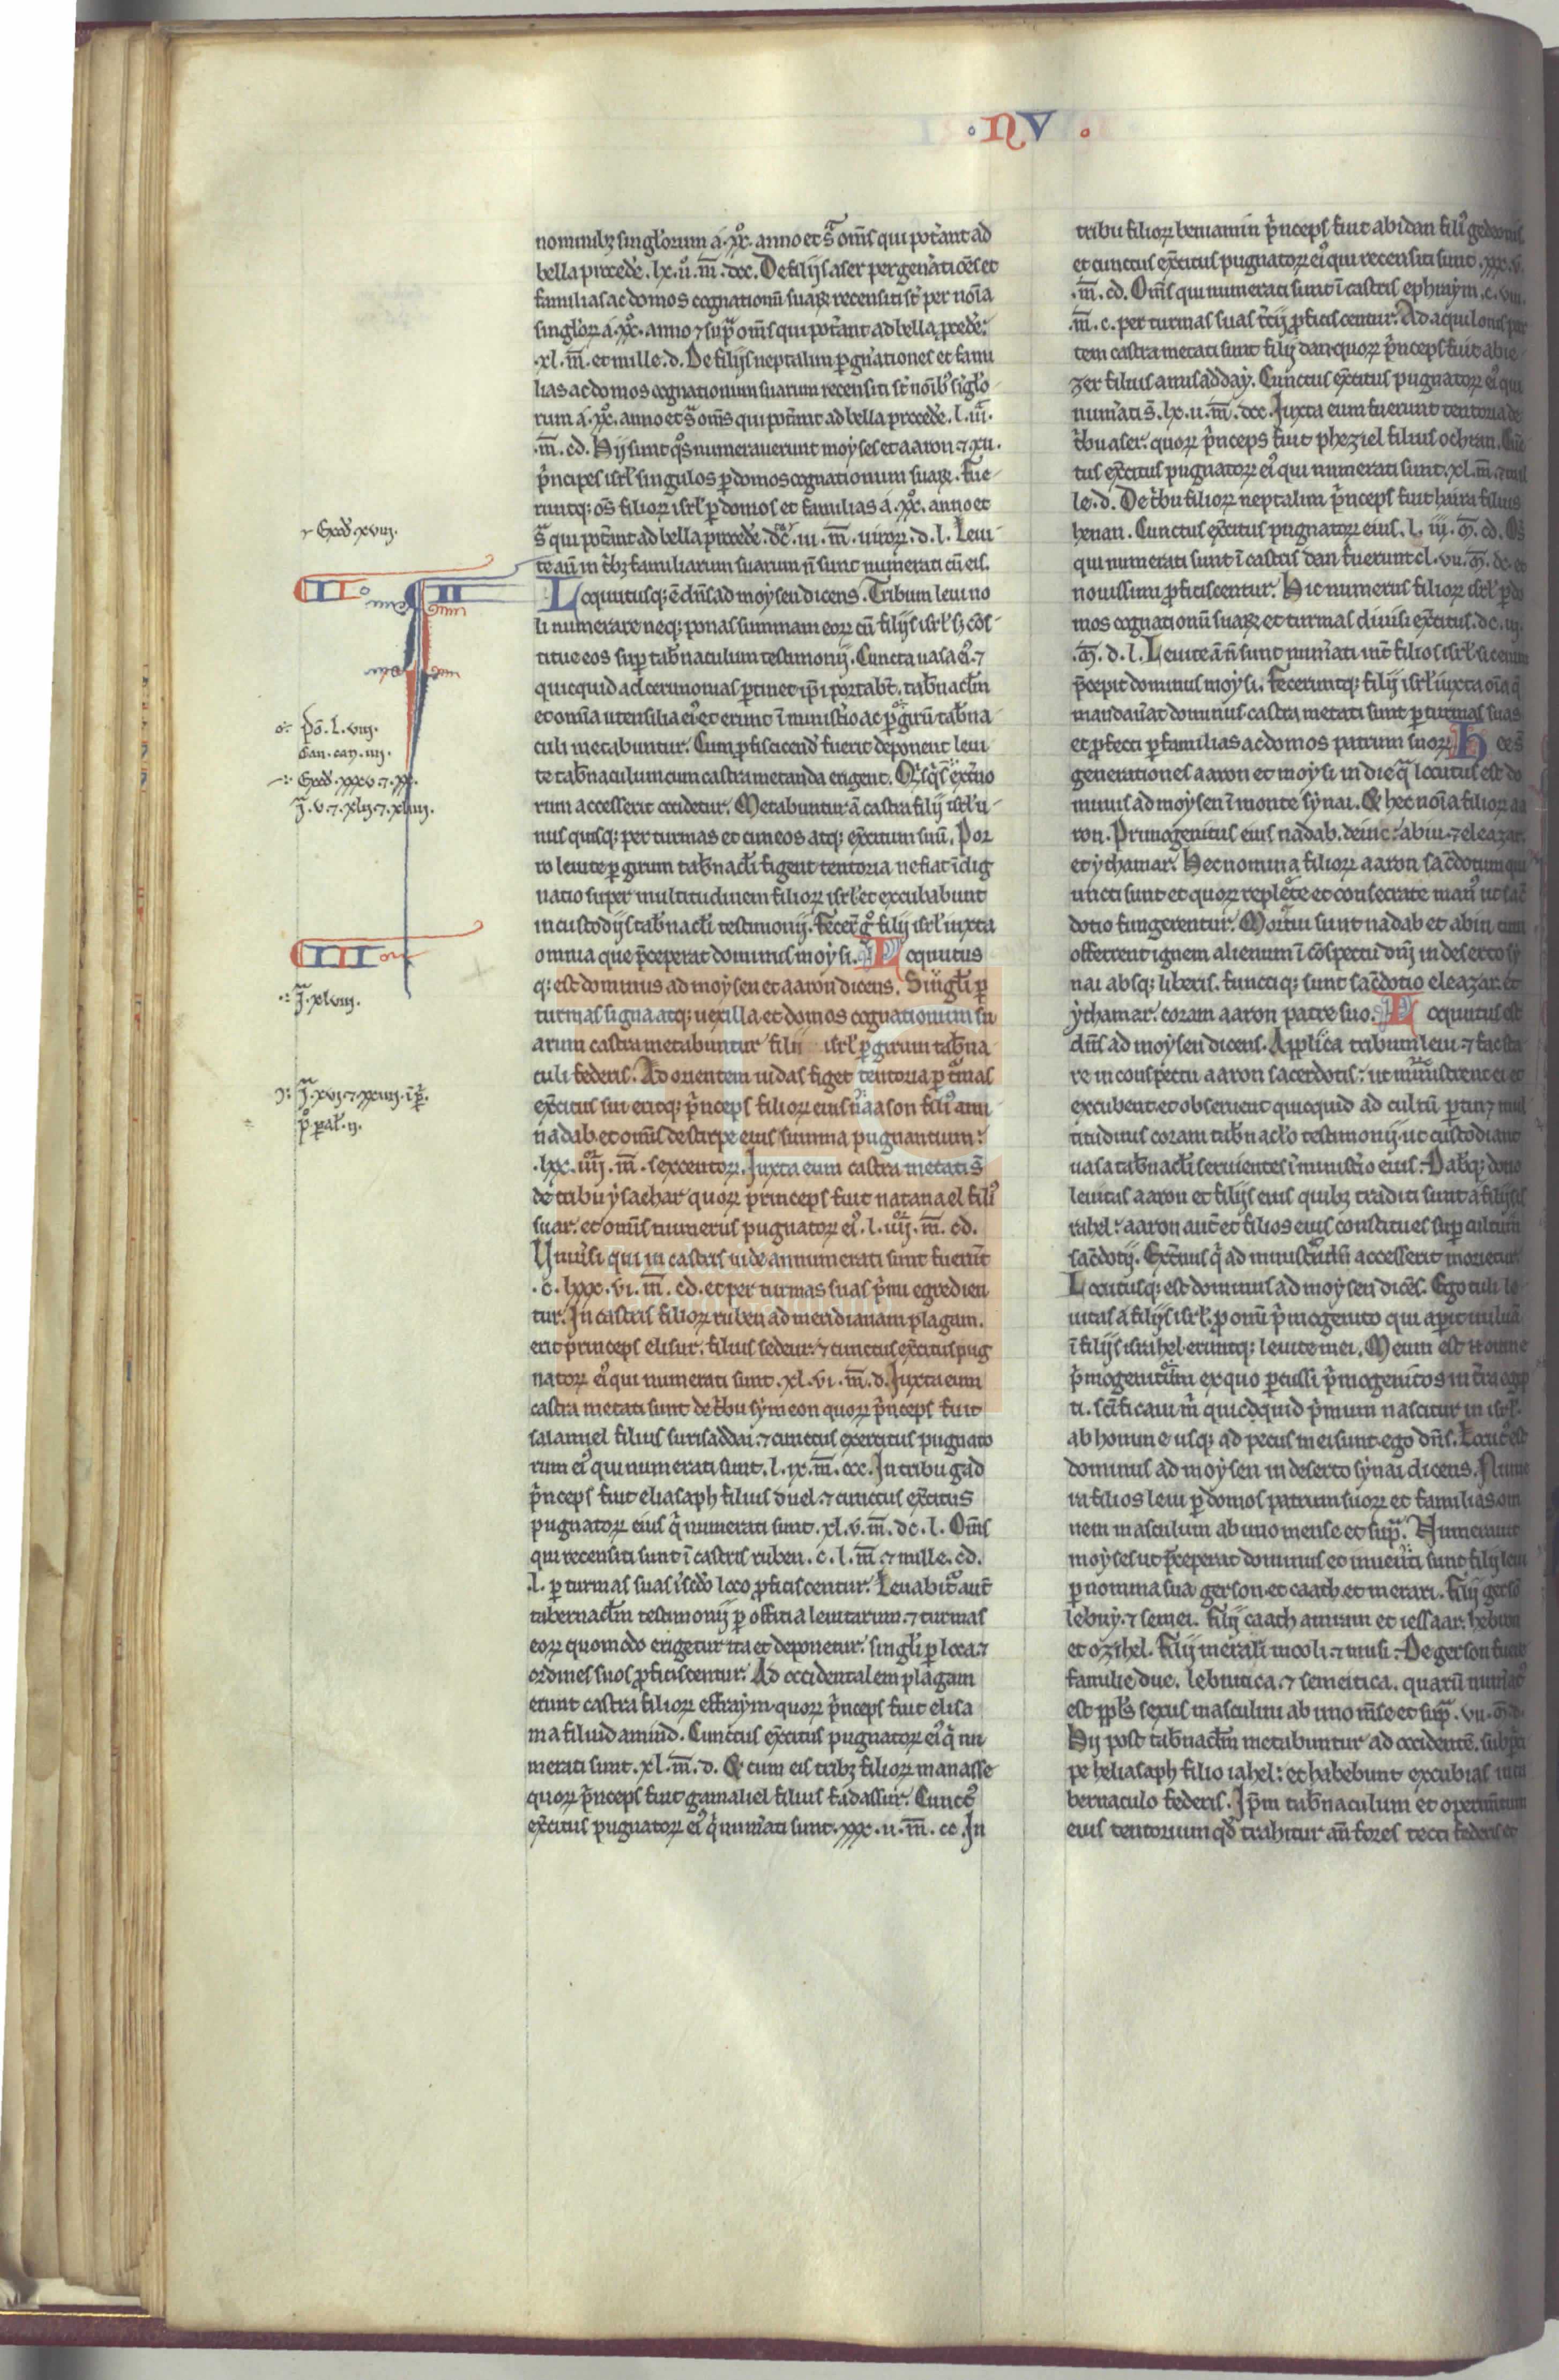 · NV ·
nominibꝫ singlorum á .xxº. anno et sª om̅s qui pot̓ant ad
bella proced̓e. lx. ii̊. m̅. dcc. De filijs aser per gen̓ationes et
familias ac domos cognationū suarꝫ recensiti st̓ per noi̅a
singlorꝝ á .xxº. anno ⁊ supª om̅s qui pot̓ant ad bella ꝓced̓e.
.xl. m̅. et mille. d. De filijs neptalim ꝑ gn̓ationes et fami
lias ac domos cognationum suarum recensiti st̓ noi̅bꝰ siglo
rum á .xxº. anno et sª om̅s qui pot̓ant ad bella proced̓e. l. iii.
.m̅. cd. Hij sunt qͦs numerauerunt moyses et aaron ⁊ .xii.
p̓ncipes isrł singulos ꝑ domos cognationum suarꝫ. Fue
runtqꝫ os̅ filiorꝝ isrł ꝑ domos et familias á .xxº. anno et
sª qui pot̓ant ad bella proced̓e. dcª. iii. m̅. uirorꝝ. d. l. Leui
te aū in t̓bꝫ familiarum suarum n̅ sunt num̓ati cū eis.
Locqutusqꝫ ē dn̅s ad moysen dicens. Tribum leui no
li numerare neqꝫ ponas summam eorꝝ cū filijs isrł ꝫ co̅s
titue eos suꝑ tab̓naculum testimonij. Cuncta uasa eiꝰ ⁊
quicquid ad cerimonias ꝑtinet ip̅i portabt̅. tab̓nacl̅m
et omia utensilia eiꝰ et erunt ī minist̓io ac ꝑ girū tab̓na
culi metabuntur. Cum ꝓficiscend̓ fuerit deponent leui
te tab̓naculum cum castra metanda erigent. Qͥsqͥs ext̓no
rum accesserit occidetur. Metabuntur á castra filij isrł u
nus quisqꝫ per turmas et cuneos atqꝫ exc̓itum suū. Por
ro leuite ꝑ girum tab̓nacl̅i figent tentoria ne fiat ī dig
natio super multitudinem filiorꝝ isrł et excubabunt
in custodijs tab̓nacl̅i testimonij. Fecer̅ gͦ filij isrł iuxta
omnia que p̅ceperat dominus moysi. Locqutus
qꝫ est dominus ad moysen et aaron dicens. Singl̅i ꝑ
turmas signa atqꝫ uexilla et domos cognationum su
arum castra metabuntur filii isrł ꝑ girum tab̓na
culi federis. Ad orientem iudas figet tentoria ꝑ tͬmas
exc̓itus sui eritqꝫ p̓nceps filiorꝝ eius naason filiꝰ ami
nadab. et om̅is de stirpe eius summa pugnantium.
.lxx. iiij. m̅. sexcentorꝝ. Iuxta eum castra metati s̅
de tribu ysachar quorꝝ princeps fuit natanael filiꝰ
suar. et om̅is numerus pugnatorꝝ eiꝰ. l. iiij. m̅. cd.
Uniu̓si qui in castris iude annumerati sunt fuerūt
.c. lxxx. vi. m̅. cd. et per turmas suas p̓mi egredien
tur. In castris filiorꝝ ruben ad meridianam plagam.
erit princeps elisur. filius sedeur. ⁊ cunctus exc̓itus pug
natorꝝ eiꝰ qui numerati sunt. xl. vi. m̅. d. Iuxta eum
castra metati sunt de t̓bu symeon quorꝝ p̓nceps fuit
salamiel filius surisaddai. ⁊ cunctus exercitus pugnato
rum eiꝰ qui numerati sunt. l. ix. m̅. ccc. In tribu gad
p̓nceps fuit eliasaph filius duel. ⁊ cunctus exc̓itus
pugnatorꝝ eius qͥ numerati sunt. xl. v. m̅. dc. l. Om̅s
qui recensiti sunt ī castris ruben. c. l. m̅. ⁊ mille. cd.
.l. ꝑ turmas suas i̅ sc̅do loco ꝓficiscentur. Leuabitͬ aūt
tabernacl̅m testimonij ꝑ officia leuitarum. ⁊ turmas
eorꝝ quomodo erigetur ita et deponetur. singl̅i ꝑ loca. ⁊
ordines suos ꝓficiscentur. Ad occidentalem plagam
erunt castra filiorꝝ effraym. quorꝝ p̓nceps fuit elisa
ma filiud amiud. Cunctus exc̓itus pugnatorꝝ eiꝰ qͥ nu
merati sunt. xl. m̅. d. Et cum eis tribꝫ filiorꝝ manasse
quorꝝ p̓nceps fuit gamaliel filius fadassur. Cunctꝰ
exc̓itus pugnatorꝝ eiꝰ qͥ num̓ati sunt. xxx. ii. m̅. cc. In
tribu filiorꝝ beniamin p̓nceps fuit abidan filiꝰ gedeonis
et cunctus exc̓itus pugnatorꝝ eiꝰ qui recensiti sunt. xxx. v.
.m̅. cd. Om̅s qui numerati sunt ī castris ephraym. c. viii.
.m̅. c. per turmas suas t̓cij ꝓficiscentur. Ad aquilonis par
tem castra metati sunt filij dan quorꝝ p̓nceps fuit abie
zer filius amisadday. Cunctus exc̓itus pugnatorꝝ eiꝰ qui
num̓ati s̅. lx. ii. m̅. dcc. Iuxta eum fuerunt tentoria de
t̓bu aser. quorꝝ p̓nceps fuit pheziel filius ochran. Cūc
tus exc̓itus pugnatorꝝ eiꝰ qui numerati sunt. xl. m̅. ⁊ mil
le. d. De t̓bu filiorꝝ neptalim p̓nceps fuit haira filius
henan. Cunctus exc̓itus pugnatorꝝ eius. l. iij. m̅. cd. Os̅
qui numerati sunt ī castris dan fuerunt cl. vii. m̅. dc. et
nouissimi ꝓficiscentur. Hic numerus filiorꝝ isrł ꝑ do
mos cognationū suarꝫ et turmas diuisi exc̓itus. dc. iij.
.m̅. d. l. Leuite á n̅ sunt num̓ati int̓ filios isrł sic enim
p̅cepit dominus moysi. Feceruntqꝫ filij isrł iuxta oi̅a q̅
mandau̓at dominus castra metati sunt ꝑ turmas suas
et ꝓfecti ꝑ familias ac domos patrum suorꝝ. Hec s̅
generationes aaron et moysi in die qª locutus est do
minus ad moysen ī monte synai. Et hec noi̅a filiorꝝ aa
ron. Primogenitus eius nadab. deinc̅. abiu. ⁊ eleazar.
et ythamar. Hec nomina filiorꝝ aaron sac̓dotum qui
uncti sunt et quorꝝ replete et consecrate manꝰ ut sac̓
dotio fungerentur. Mortui sunt nadab et abiu cum
offerrent ignem alienum ī co̅spectu dn̅i in deserto sy
nai absqꝫ liberis. functiqꝫ sunt sac̓dotio eleazar. et
ythamar. coram aaron patre suo. Locqutus est
dn̅s ad moysen dicens. Applica tribum leui ⁊ fac sta
re in conspectu aaron sacerdotis. ut ministrent ei et
excubent et obseruent quicquid ad cultū ꝑtin⁊ mul
titudinis coram tab̓naclo̅ testimonij. ut custodiant
uasa tab̓nacl̅i seruientes ī minist̓io eius. Dabqꝫ dono
leuitas aaron et filijs eius quibꝫ traditi sunt a filijs is
rahel. aaron aut̅ et filios eius constitues suꝑ cultum
sac̓dotij. Ext̓nus qͥ ad ministrādū accesserit morietur.
Locutusqꝫ est dominus ad moysen dice̅s. Ego tuli le
uitas a filijs isrł. ꝓ omi̅ p̓mogenito qui aꝑit uuluā
ī filijs israhel. eruntqꝫ leuite mei. Meum est n̅ omne
p̓mogenitum ex quo ꝑcussi p̓mogenitos in t̓ra egip
ti. sc̅ificaui m̓ quicdquid p̓mum nascitur in isrł.
ab homine usqꝫ ad pecus mei sunt. ego dn̅s. Locutꝰ est
dominus ad moysen in deserto synai dicens. Nume
ra filios leui ꝑ domos patrum suorꝝ et familias om
nem masculum ab uno mense et supª. Numerauit
moyses ut p̅ceperat dominus et inuenti sunt filij leui
ꝑ nomina sua gerson. et caath. et merari. Filij gerso̅
lebny. ⁊ semei. Filij caath amram et iessaar. hebron
et ozihel. Filij merali mooli. ⁊ musi. De gerson fuere
familie due. lebnitica. ⁊ semeitica. quarū num̓atꝰ
est ppl̅s sexus masculini ab uno mn̅se et supª. vii. m̅. d.
Hij post tab̓nacl̅m metabuntur ad occidente̅. sub p̓nci
pe heliasaph filio iahel. et habebunt excubias in ta
bernaculo federis. Ip̅m tab̓naculum et operim̅tum
eius tentorium qd̓ trahitur an̅ fores tecti federis et
Exod̓. xviii.
II
II
po̅. l. viii.
Can. cay. iiii.
Exod̓. xxxv. ⁊ xx.
J̅. v. ⁊ xlij. ⁊ xliiii.
III
J̅. xlviii.
J̅. xvi. ⁊ xxiiij. i̅ p̅.
pͦ paral̓. ij.